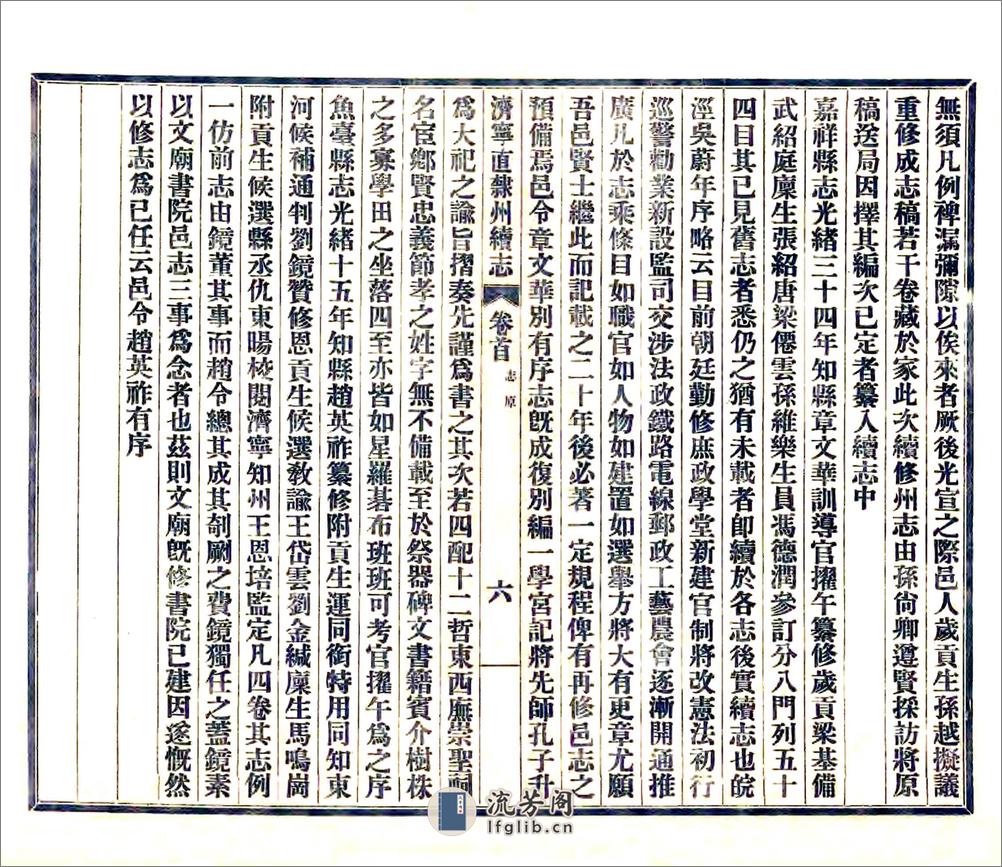 無須凡例裨漏彌隙以俟來者厥後光宣之際邑人歲貢生孫越擬議
重修成志稿若干卷藏於家此次續修州志由孫尙卿遵賢採訪將原
稿送局因擇其編次已定者纂入續志中
嘉祥縣志光緒三十四年知縣章文華訓導官擢午纂修歲貢梁基備
武紹庭廩生張紹唐梁僊雲孫維樂生員馮德潤參訂分八門列五十
四目其已見舊志者悉仍之猶有未載者卽續於各志後實續志也皖
涇吳蔚年序略云目前朝廷勤修庶政學堂新建官制將改憲法初行
巡警勸業新設監司交涉法政鐵路電線郵政工藝農會逐漸開通推
廣凡於志乘條目如職官如人物如建置如選舉方將大有更章尤願
吾邑賢士繼此而記載之二十年後必著一定規程俾有再修邑志之
預備焉邑令章文華別有序志旣成復別編一學宮記將先師孔子升
濟寧直隸州續志 卷首 志原 六
爲大祀之諭旨摺奏先謹爲書之其次若四配十二哲東西廡崇聖祠
名宦鄉賢忠義節孝之姓字無不備載至於祭器碑文書籍賓介樹株
之多寡學田之坐落四至亦皆如星羅碁布班班可考官擢午爲之序
魚臺縣志光緒十五年知縣趙英祚纂修附貢生運同銜特用同知東
河候補通判劉鏡贊修恩貢生候選敎諭王岱雲劉金緘廩生馬鳴崗
附貢生候選縣丞仇東暘校閱濟寧知州王恩培監定凡四卷其志例
一仿前志由鏡董其事而趙令總其成其剞劂之費鏡獨任之蓋鏡素
以文廟書院邑志三事爲念者也茲則文廟旣修書院已建因遂慨然
以修志爲已任云邑令趙英祚有序
流芳閣
lfglib.cn